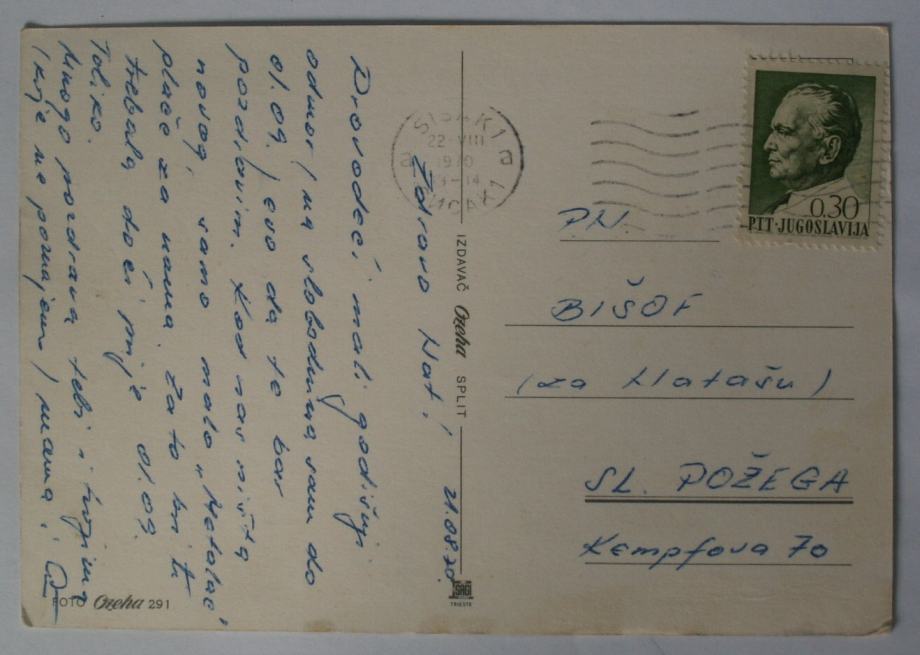 21.08.70
Zdravo Nat!
Provodeć mali godišnji
odmor (na slobodna sam do
01.09.) evo da te bar
pozdravim. Kod nas ništa
novog, samo malo „Metalac"
plače za nama. Zato bi ti
trebala doći prije 01.09.
Toliko.
Mnogo pozdrava tebi i tvojima
(koje ne poznajem) mama i
IZDAVAČ Ozeha SPLIT
SAGI
TRIESTE
FOTO Ozeha 291
SISAK 1
22-VIII
1970
СИСАК 1
0.30
PTT·JUGOSLAVIJA
PN.
BIŠOF
(za Natašu)
SL. POŽEGA
Kempfova 70